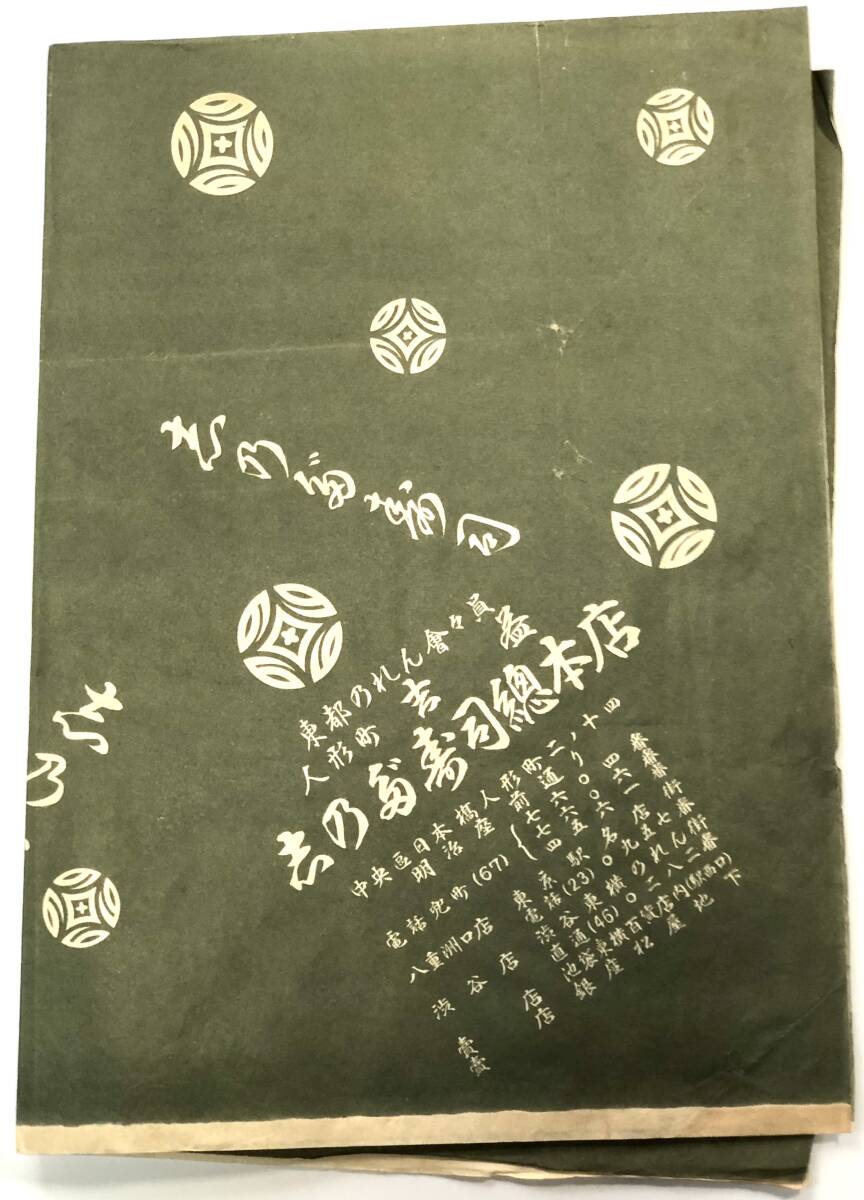 志乃多寿司
東都のれん會々員
人形町 吉益
志乃多壽司總本店
中央區日本橋人形町二ノ十四
明治座前通り
電話兜町(67)
七六〇四番
七六〇六番
四五六一番
八重洲口店 東京駅名店街
電話(23)
渋谷店 渋谷東横のれん街
直通(46)〇二八二番
賣店 池袋東横百貨店内(駅西口)
賣店 銀座松屋地下
志乃